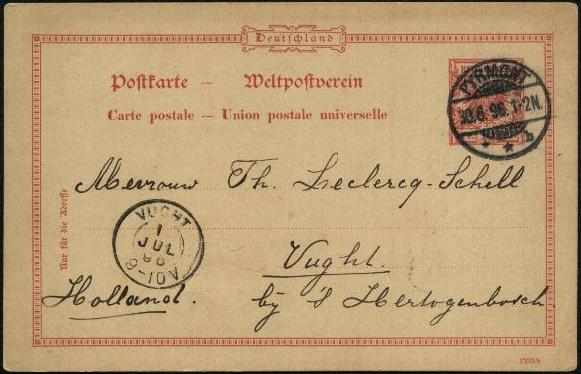 Deutschland
Postkarte — Weltpostverein
Carte postale — Union postale universelle
PYRMONT
30.6.98. 1-2N.
b
Mevrouw Th. Leclercq-Schell
Nur für die Adresse
VUGHT
1
JUL
98
Vught.
Holland. by 's Hertogenbosch